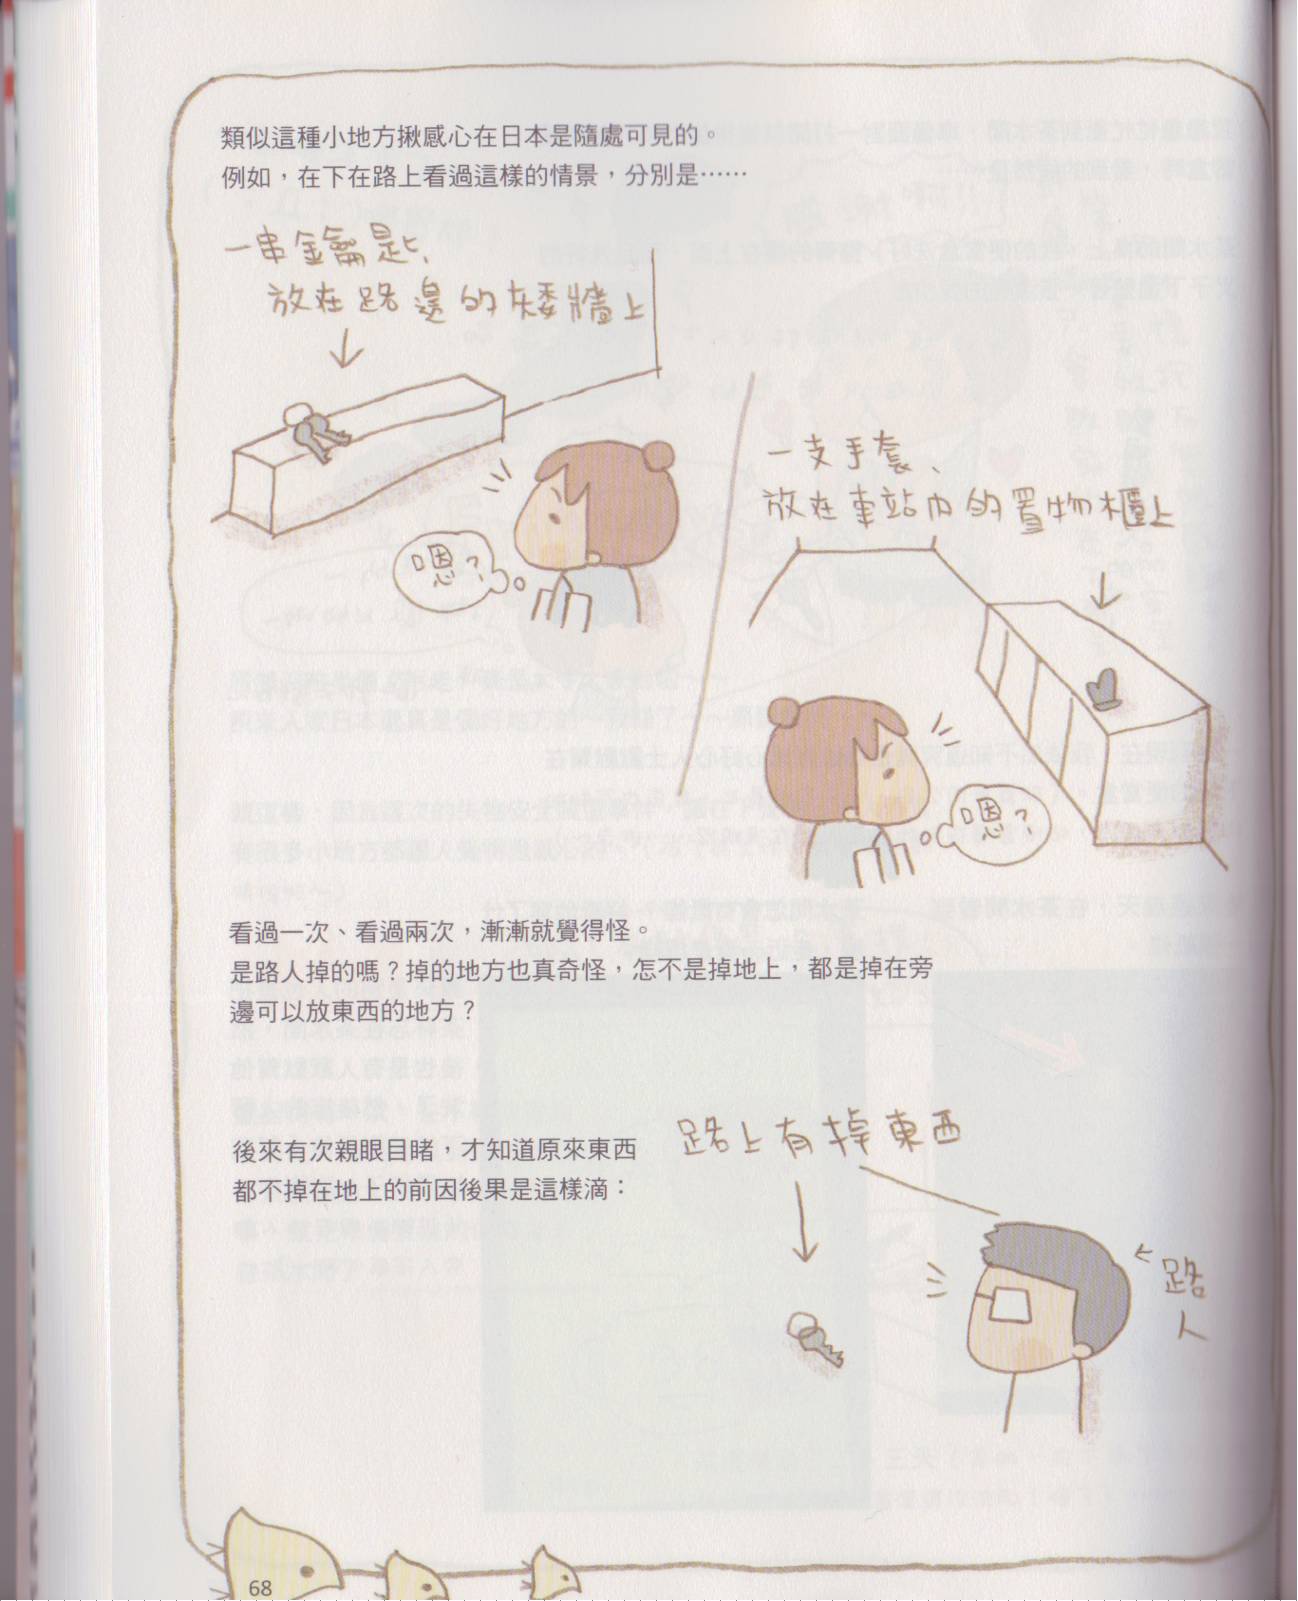 類似這種小地方揪感心在日本是隨處可見的。
例如，在下在路上看過這樣的情景，分別是……
一串金鑰匙、
放在路邊的矮牆上
嗯？
一支手套、
放在車站內的置物櫃上
嗯？
看過一次、看過兩次，漸漸就覺得怪。
是路人掉的嗎？掉的地方也真奇怪，怎不是掉地上，都是掉在旁
邊可以放東西的地方？
後來有次親眼目睹，才知道原來東西
都不掉在地上的前因後果是這樣滴：
路上有掉東西
路人
68